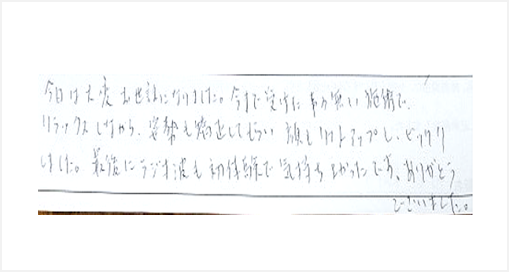 今日は大変お世話になりました。今まで受けた事が無い施術で、
リラックスしながら、姿勢も矯正してもらい 顔もリフトアップし、ビックリ
しました。最後にラジオ波も初体験で気持ちよかったです。ありがとう
ございました。